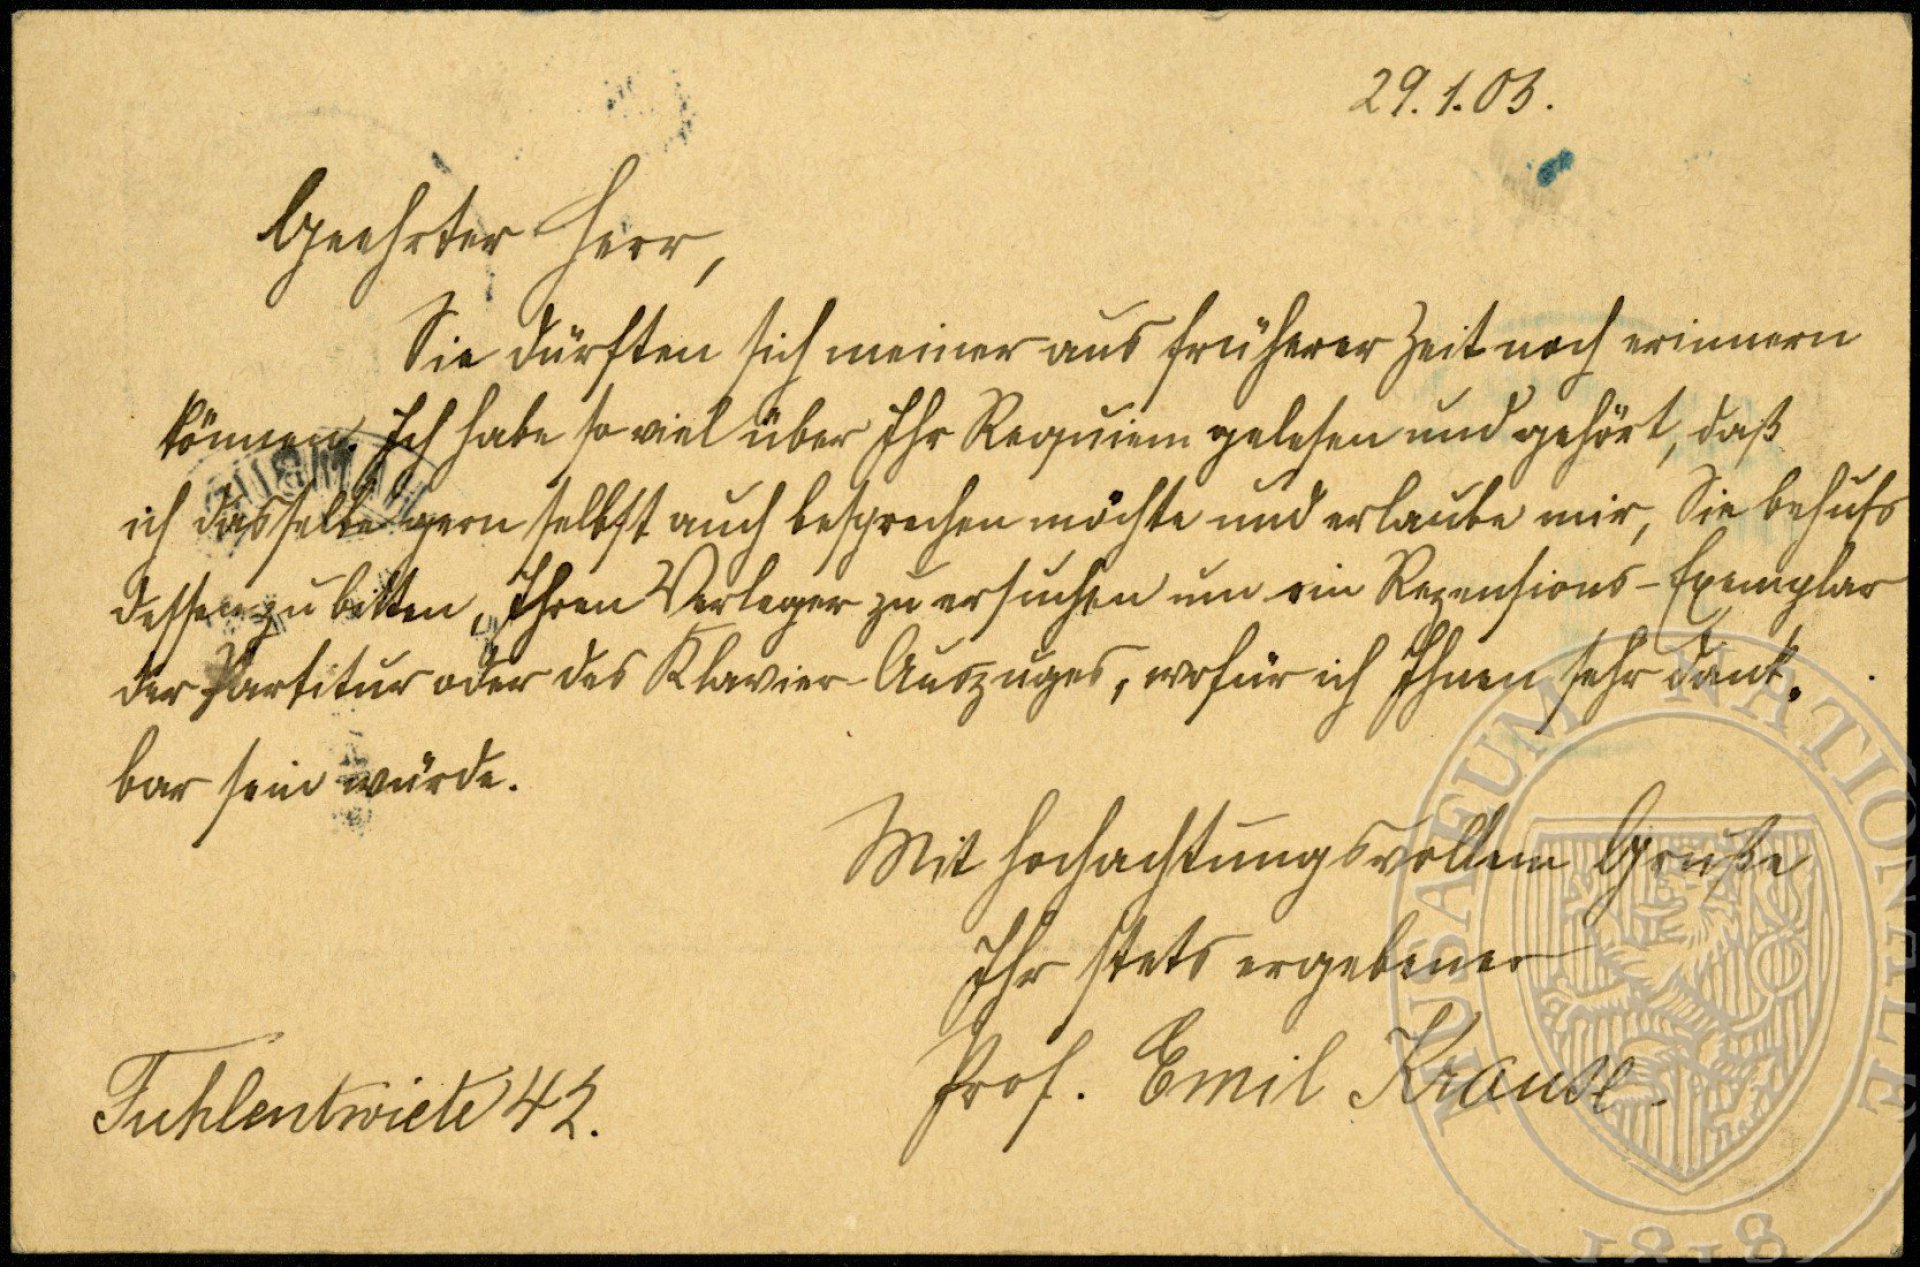 29. 1. 03.
Geehrter Herr,
Sie dürften sich meiner aus früherer Zeit noch erinnern
können. Ich habe so viel über Ihr Requiem gelesen und gehört, daß
ich dasselbe gern selbst auch besprechen möchte und erlaube mir, Sie behufs
dessen zu bitten, Ihren Verleger zu ersuchen um ein Rezensions-Exemplar
der Partitur oder des Klavier-Auszuges, wofür ich Ihnen sehr dank-
bar sein würde.
Mit hochachtungsvollem Gruße
Ihr stets ergebener
Prof. Emil Krause.
Fuhlentwiete 42.
MUSAEUM NATIONALE
1818